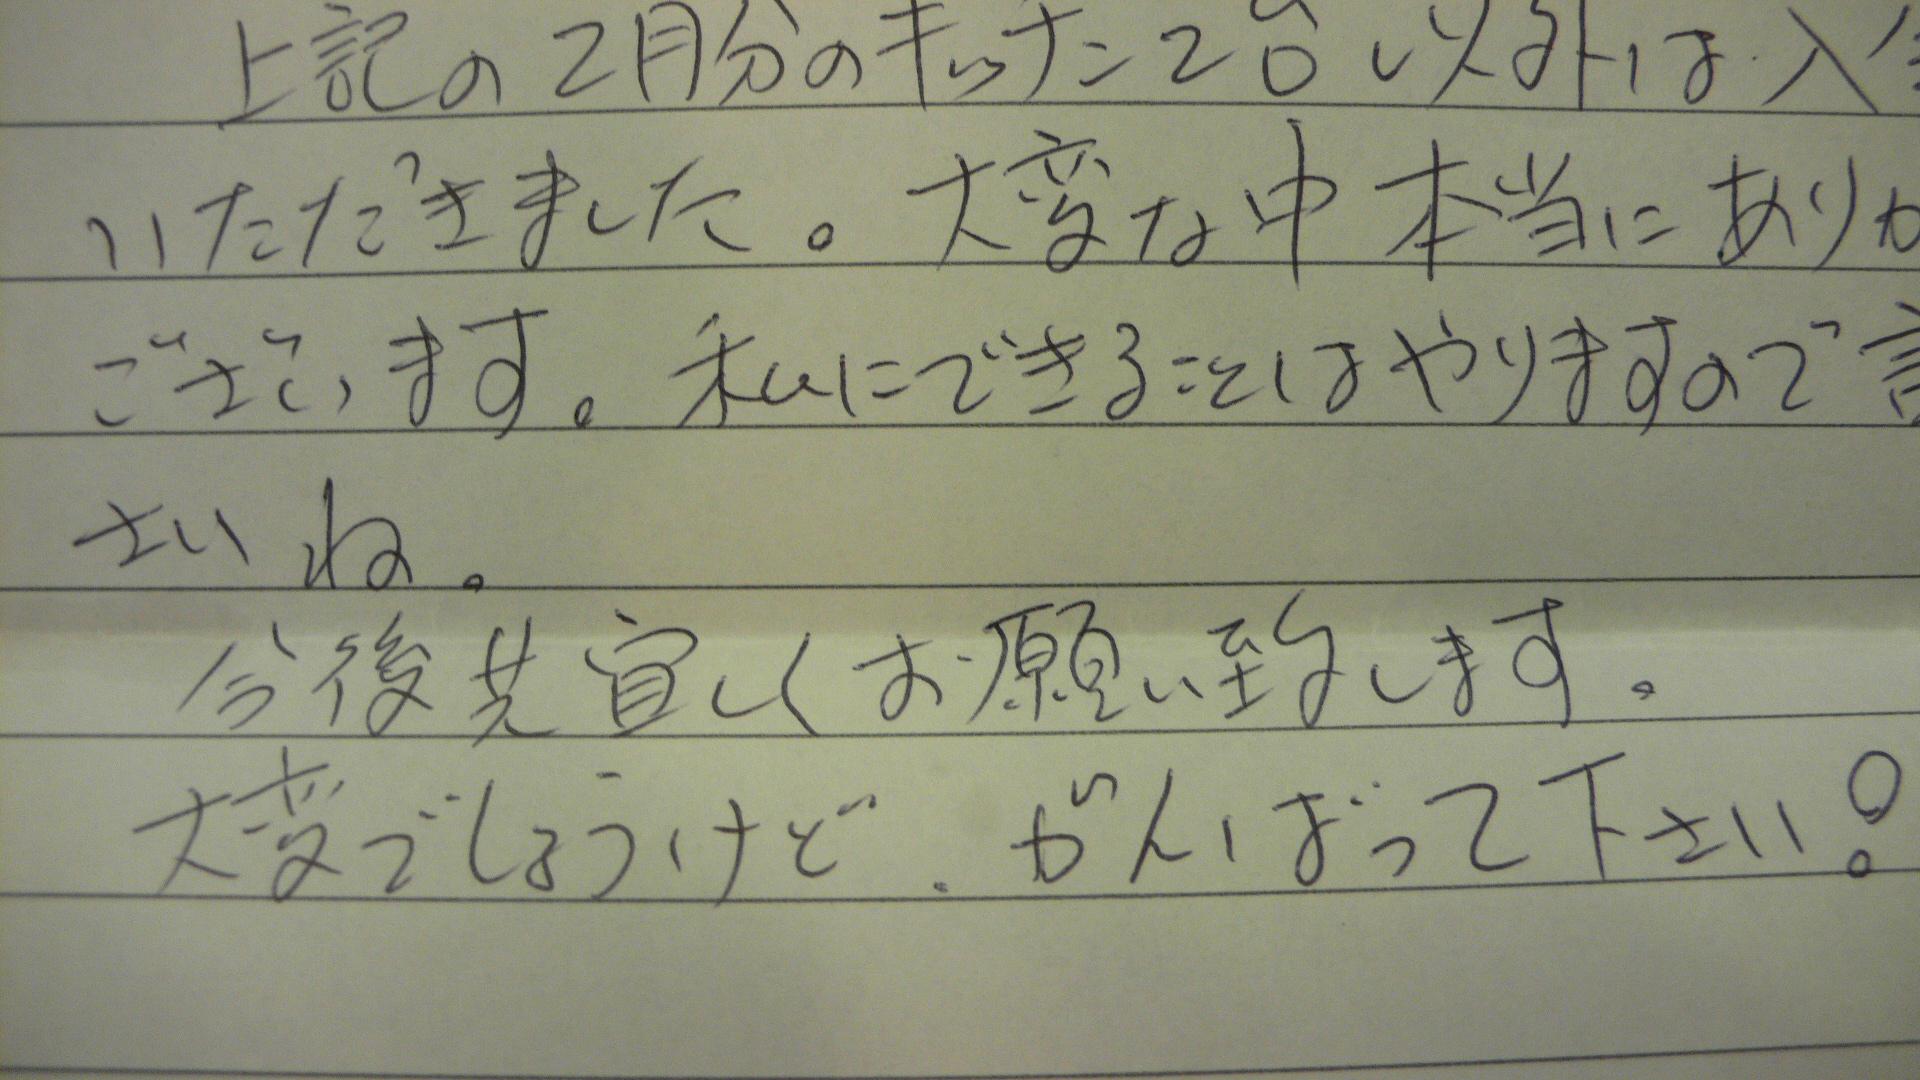 上記の2月分のキッチン2台以外は入
いただきました。大変な中本当にありが
ございます。私にできることはやりますので言
さいね。
今後共宜しくお願い致します。
大変でしょうけど、がんばって下さい!